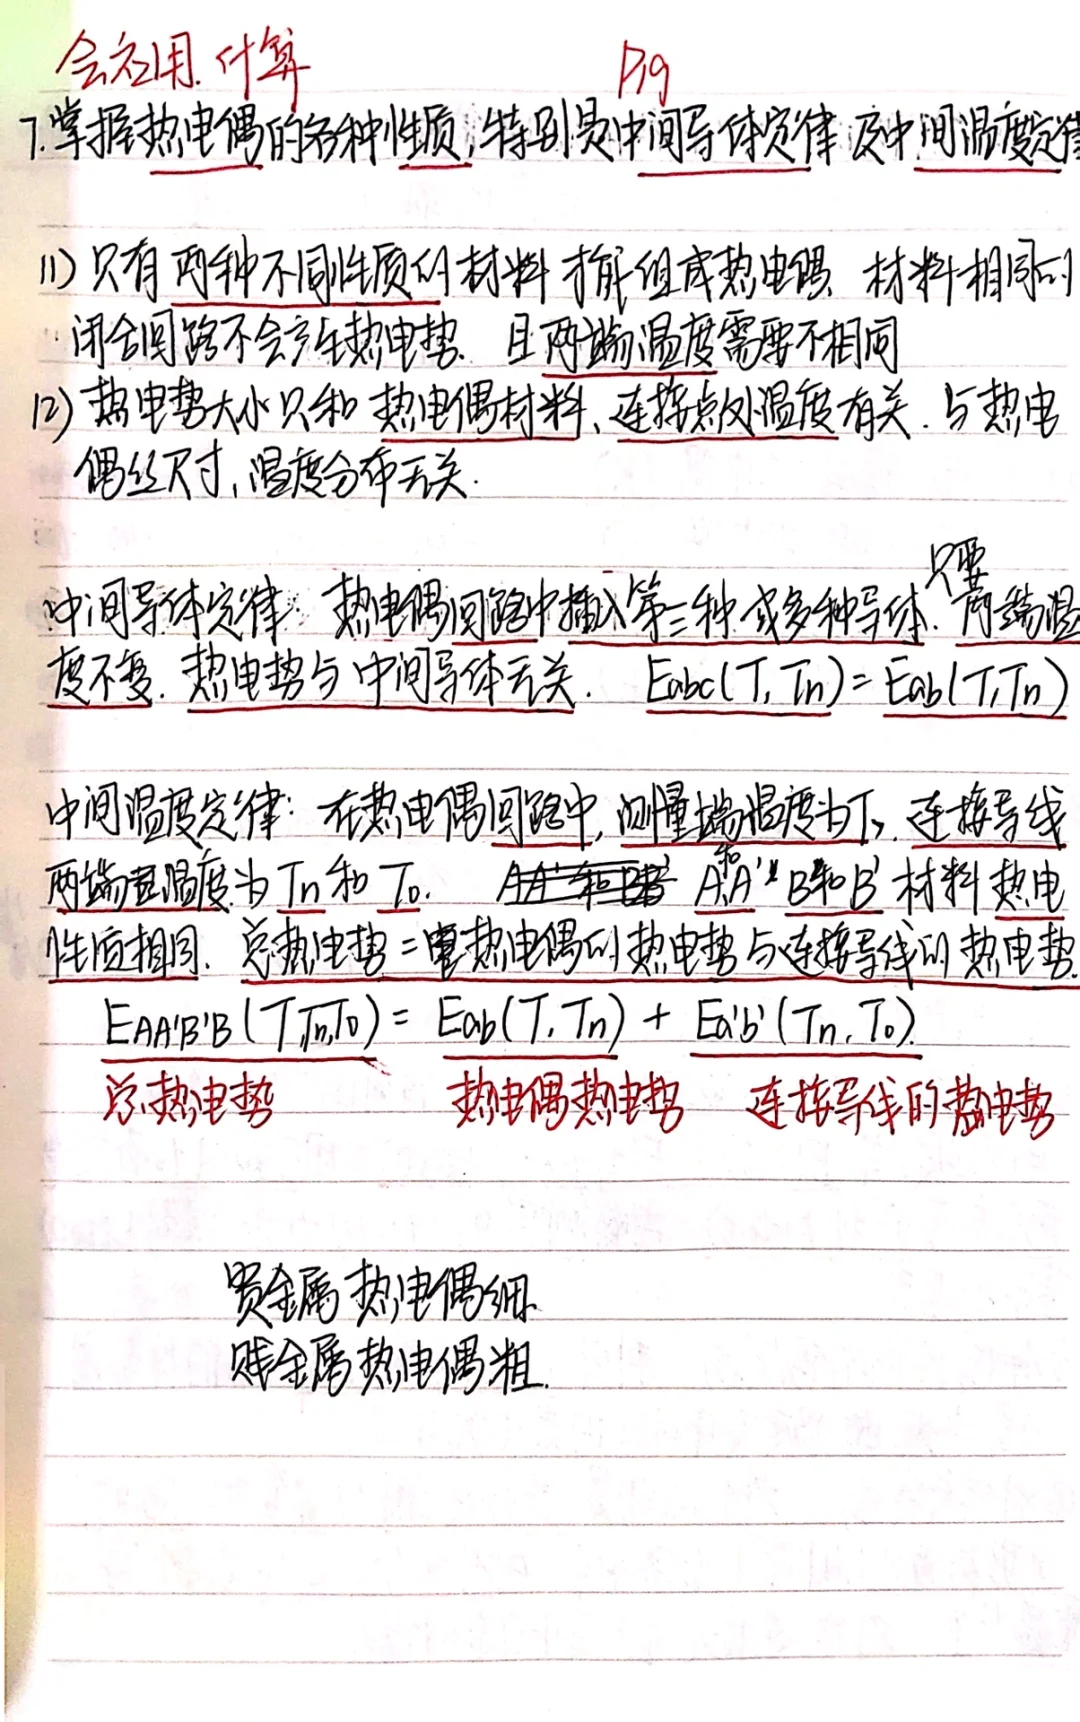 会应用.计算 P19
7.掌握热电偶的各种性质,特别是中间导体定律及中间温度定律
(1)只有两种不同性质的材料才能组成热电偶 材料相同的
闭合回路不会产生热电势. 且两端温度需要不相同
(2)热电势大小只和热电偶材料、连接点处温度有关.与热电
偶丝尺寸,温度分布无关.
只要
中间导体定律: 热电偶回路中插入第三种或多种导体. 两端温
度不变. 热电势与中间导体无关. Eabc(T,Tn)=Eab(T,Tn)
中间温度定律: 在热电偶回路中,测量端温度为T, 连接导线
两端温度为Tn和To. A和A' B和B'材料热电
性质相同. 总热电势=热电偶的热电势与连接导线的热电势.
EAA'B'B(T,Tn,To)=Eab(T,Tn)+Ea'b'(Tn,To).
总热电势 热电偶热电势 连接导线的热电势
贵金属热电偶细.
贱金属热电偶粗.